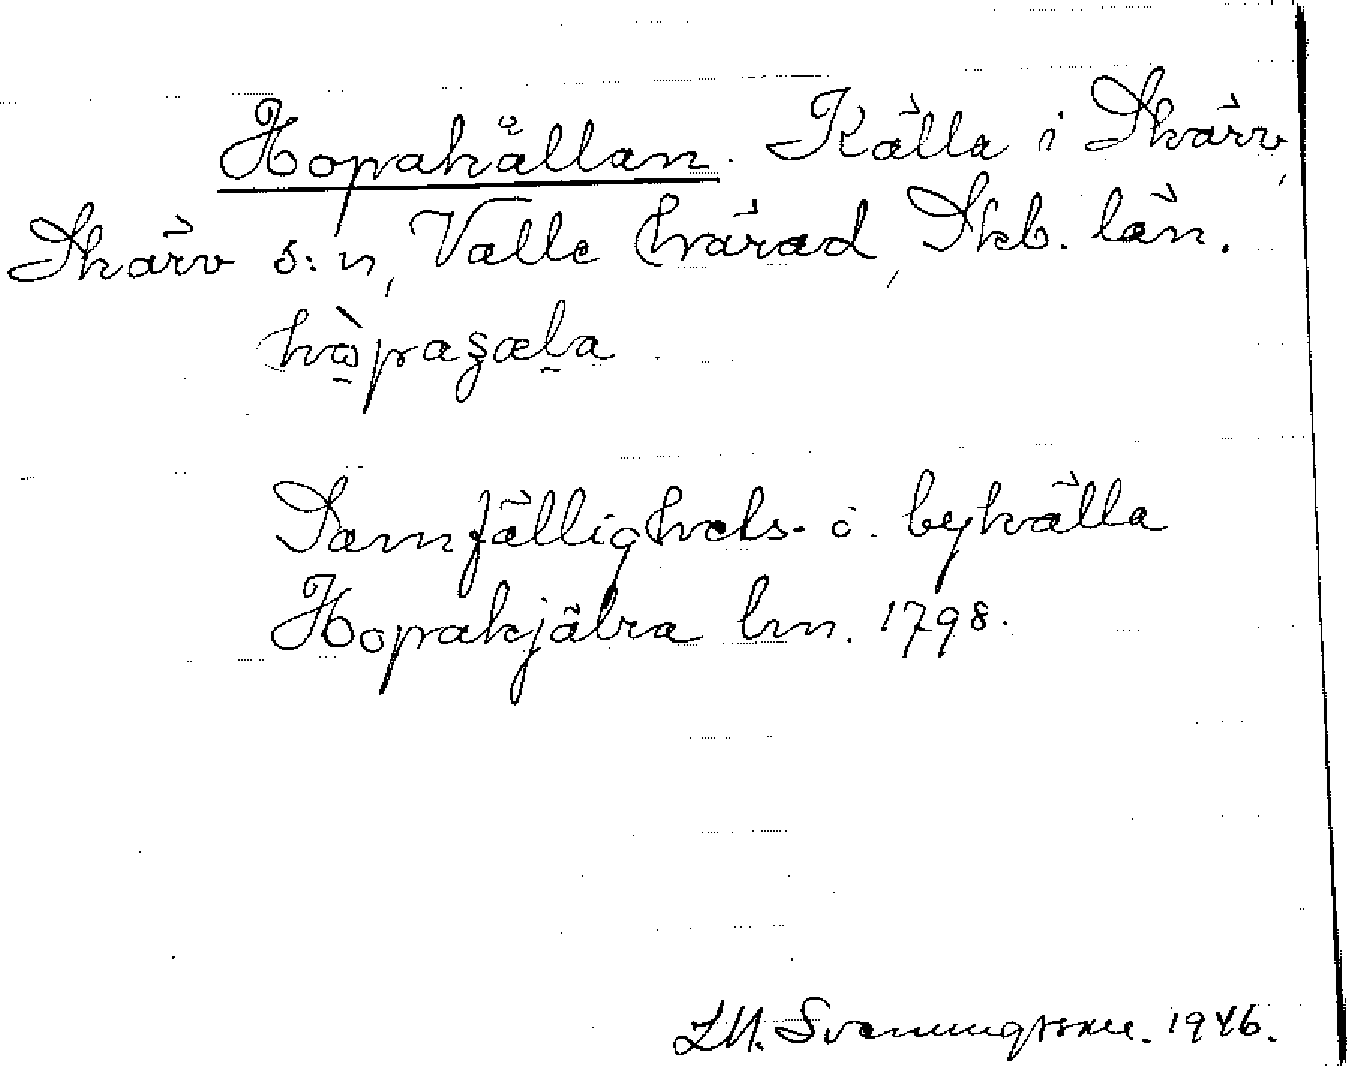 Hopakällan. Källa i Skärv,
Skärv s:n, Valle härad, Skb. län.
Samfällighets- o. bykälla
Hopakjälra lm. 1798.
Svenningsson. 1946.